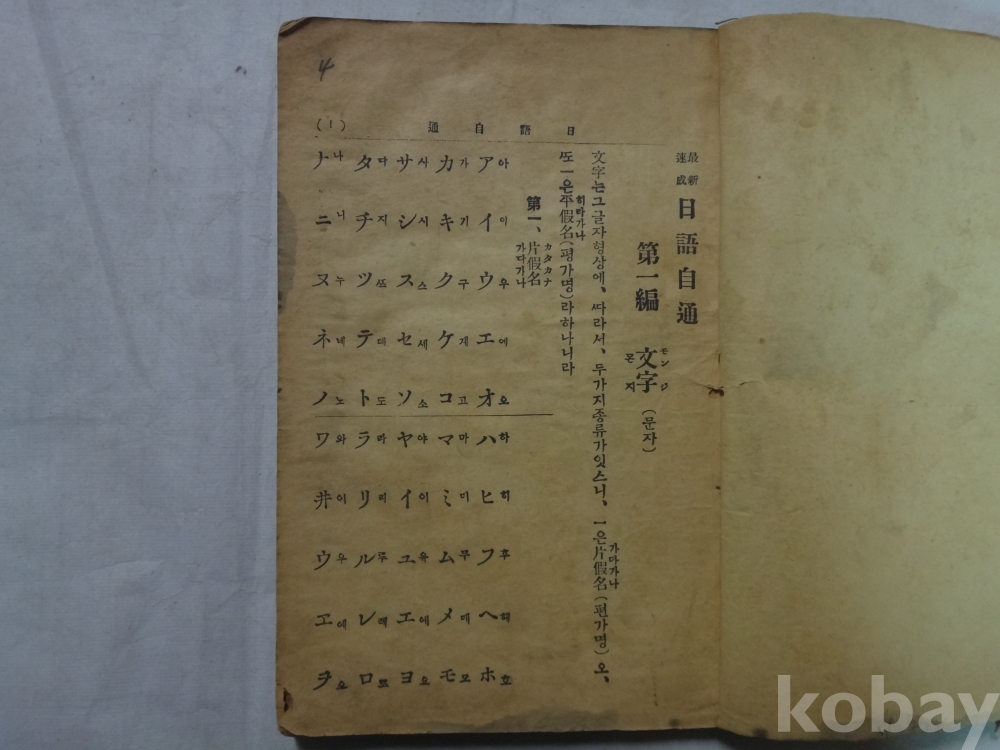 4
日語自通
(1)
最新
速成
日語自通
第一編 文字(문자)
モンジ
몬지
文字는그글자형상에、따라서、두가지종류가잇스니、一은片假名(편가명)오、
가다가나
또一은平假名(평가명)라하나니라
히라가나
第一、片假名
カタカナ
가다가나
ア아 イ이 ウ우 エ에 オ오
カ가 キ기 ク구 ケ게 コ고
サ사 シ시 ス스 セ세 ソ소
タ다 チ지 ツ쯔 テ데 ト도
ナ나 ニ니 ヌ누 ネ네 ノ노
ハ하 ヒ히 フ후 ヘ헤 ホ호
マ마 ミ미 ム무 メ메 モ모
ヤ야 イ이 ユ유 エ에 ヨ요
ラ라 リ리 ル루 レ레 ロ로
ワ와 井이 ウ우 エ에 ヲ오
kobay